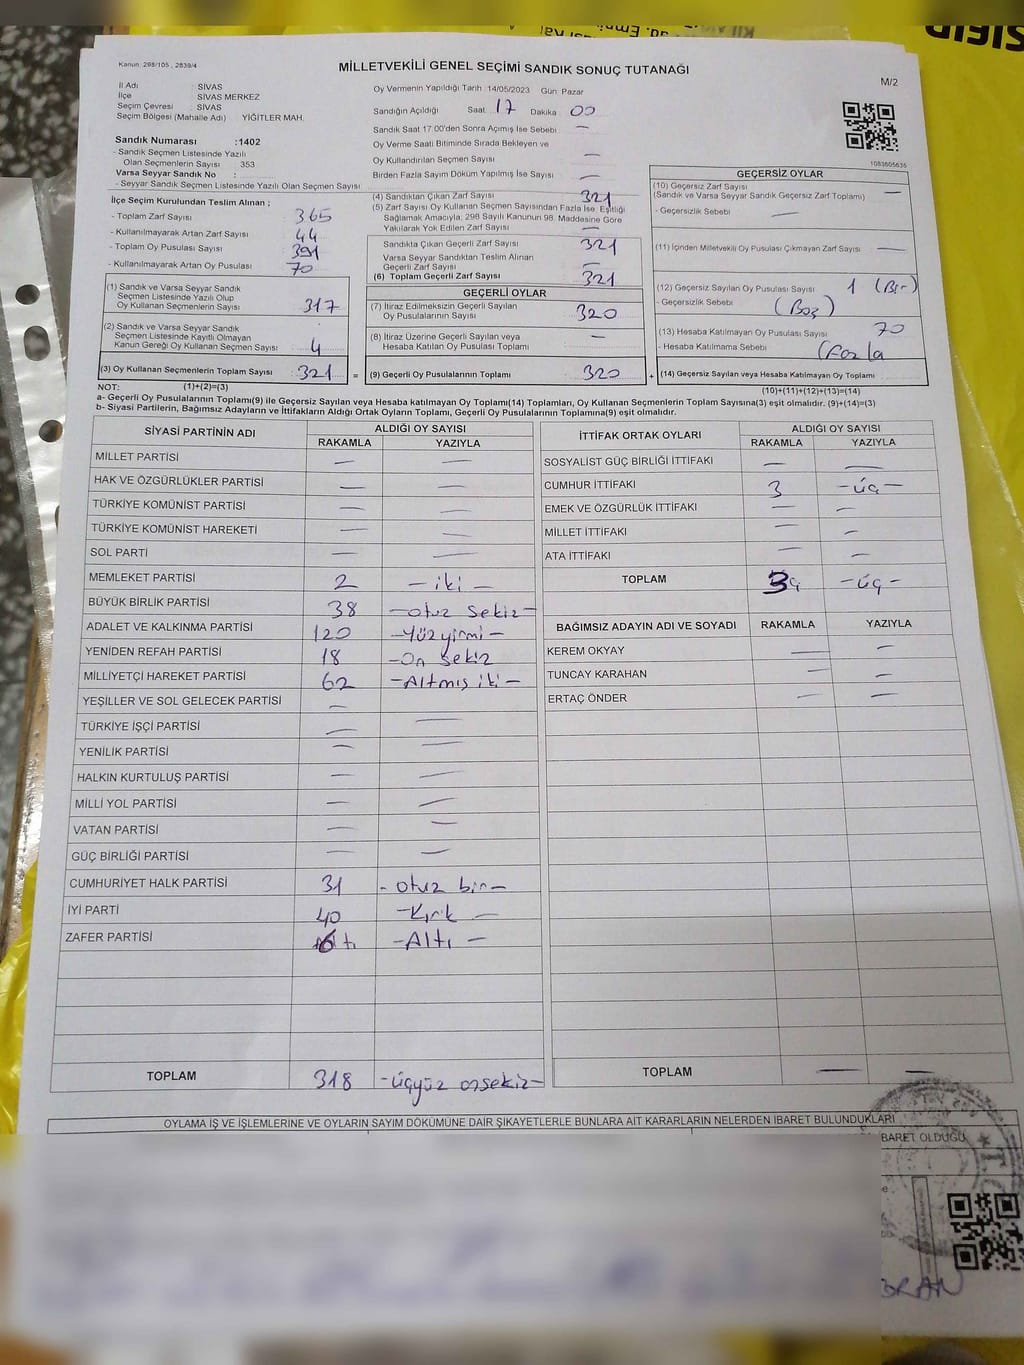 SIFIR
Kanun 298/105 , 2839/4
MİLLETVEKİLİ GENEL SEÇİMİ SANDIK SONUÇ TUTANAĞI
M/2
İl Adı : SİVAS
İlçe : SİVAS MERKEZ
Seçim Çevresi : SİVAS
Seçim Bölgesi (Mahalle Adı) YİĞİTLER MAH.
Sandık Numarası :1402
- Sandık Seçmen Listesinde Yazılı
Olan Seçmenlerin Sayısı 353
Varsa Seyyar Sandık No :
- Seyyar Sandık Seçmen Listesinde Yazılı Olan Seçmen Sayısı
Oy Vermenin Yapıldığı Tarih 14/05/2023 Gün: Pazar
Sandığın Açıldığı Saat 17 Dakika 00
Sandık Saat 17.00'den Sonra Açımış İse Sebebi : —
Oy Verme Saati Bitiminde Sırada Bekleyen ve
Oy Kullandırılan Seçmen Sayısı —
Birden Fazla Sayım Döküm Yapılmış İse Sayısı —
1083805635
İlçe Seçim Kurulundan Teslim Alınan ;
- Toplam Zarf Sayısı 365
- Kullanılmayarak Artan Zarf Sayısı 44
- Toplam Oy Pusulası Sayısı 391
- Kullanılmayarak Artan Oy Pusulası 70
(1) Sandık ve Varsa Seyyar Sandık
Seçmen Listesinde Yazılı Olup
Oy Kullanan Seçmenlerin Sayısı 317
(2) Sandık ve Varsa Seyyar Sandık
Seçmen Listesinde Kayıtlı Olmayan
Kanun Gereği Oy Kullanan Seçmen Sayısı 4
(3) Oy Kullanan Seçmenlerin Toplam Sayısı 321 =
(4) Sandıktan Çıkan Zarf Sayısı 321
(5) Zarf Sayısı Oy Kullanan Seçmen Sayısından Fazla İse, Eşitliği
Sağlamak Amacıyla; 298 Sayılı Kanunun 98. Maddesine Göre
Yakılarak Yok Edilen Zarf Sayısı —
Sandıkta Çıkan Geçerli Zarf Sayısı 321
Varsa Seyyar Sandıktan Teslim Alınan
Geçerli Zarf Sayısı —
(6) Toplam Geçerli Zarf Sayısı 321
GEÇERLİ OYLAR
(7) İtiraz Edilmeksizin Geçerli Sayılan
Oy Pusulalarının Sayısı 320
(8) İtiraz Üzerine Geçerli Sayılan veya
Hesaba Katılan Oy Pusulası Toplamı —
(9) Geçerli Oy Pusulalarının Toplamı 320 +
GEÇERSİZ OYLAR
(10) Geçersiz Zarf Sayısı —
(Sandık ve Varsa Seyyar Sandık Geçersiz Zarf Toplamı)
- Geçersizlik Sebebi —
(11) İçinden Milletvekili Oy Pusulası Çıkmayan Zarf Sayısı —
(12) Geçersiz Sayılan Oy Pusulası Sayısı 1 (Bir)
- Geçersizlik Sebebi (Boş)
(13) Hesaba Katılmayan Oy Pusulası Sayısı 70
- Hesaba Katılmama Sebebi (Fazla
(14) Geçersiz Sayılan veya Hesaba Katılmayan Oy Toplamı
NOT: (1)+(2)=(3)
(10)+(11)+(12)+(13)=(14)
a- Geçerli Oy Pusulalarının Toplamı(9) ile Geçersiz Sayılan veya Hesaba katılmayan Oy Toplamı(14) Toplamları, Oy Kullanan Seçmenlerin Toplam Sayısına(3) eşit olmalıdır. (9)+(14)=(3)
b- Siyasi Partilerin, Bağımsız Adayların ve İttifakların Aldığı Ortak Oyların Toplamı, Geçerli Oy Pusulalarının Toplamına(9) eşit olmalıdır.
SİYASİ PARTİNİN ADI ALDIĞI OY SAYISI
RAKAMLA YAZIYLA
MİLLET PARTİSİ — —
HAK VE ÖZGÜRLÜKLER PARTİSİ — —
TÜRKİYE KOMÜNİST PARTİSİ — —
TÜRKİYE KOMÜNİST HAREKETİ — —
SOL PARTİ — —
MEMLEKET PARTİSİ 2 -iki-
BÜYÜK BİRLİK PARTİSİ 38 -otuz sekiz-
ADALET VE KALKINMA PARTİSİ 120 -Yüzyirmi-
YENİDEN REFAH PARTİSİ 18 -On sekiz
MİLLİYETÇİ HAREKET PARTİSİ 62 -Altmış iki-
YEŞİLLER VE SOL GELECEK PARTİSİ —
TÜRKİYE İŞÇİ PARTİSİ — —
YENİLİK PARTİSİ — —
HALKIN KURTULUŞ PARTİSİ — —
MİLLİ YOL PARTİSİ — —
VATAN PARTİSİ — —
GÜÇ BİRLİĞİ PARTİSİ — —
CUMHURİYET HALK PARTİSİ 31 - otuz bir-
İYİ PARTİ 40 -Kırk -
ZAFER PARTİSİ 6 -Altı -
TOPLAM 318 -üçyüz onsekiz-
İTTİFAK ORTAK OYLARI ALDIĞI OY SAYISI
RAKAMLA YAZIYLA
SOSYALİST GÜÇ BİRLİĞİ İTTİFAKI — —
CUMHUR İTTİFAKI 3 -üç-
EMEK VE ÖZGÜRLÜK İTTİFAKI — —
MİLLET İTTİFAKI — —
ATA İTTİFAKI — —
TOPLAM 3 -üç-
BAĞIMSIZ ADAYIN ADI VE SOYADI RAKAMLA YAZIYLA
KEREM OKYAY — —
TUNCAY KARAHAN — —
ERTAÇ ÖNDER — —
TOPLAM — —
OYLAMA İŞ VE İŞLEMLERİNE VE OYLARIN SAYIM DÖKÜMÜNE DAİR ŞİKAYETLERLE BUNLARA AİT KARARLARIN NELERDEN İBARET BULUNDUKLARI
BARET OLDUĞU